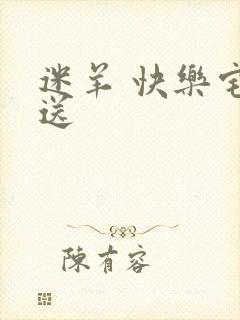 迷羊 快樂宅
送
陳有容